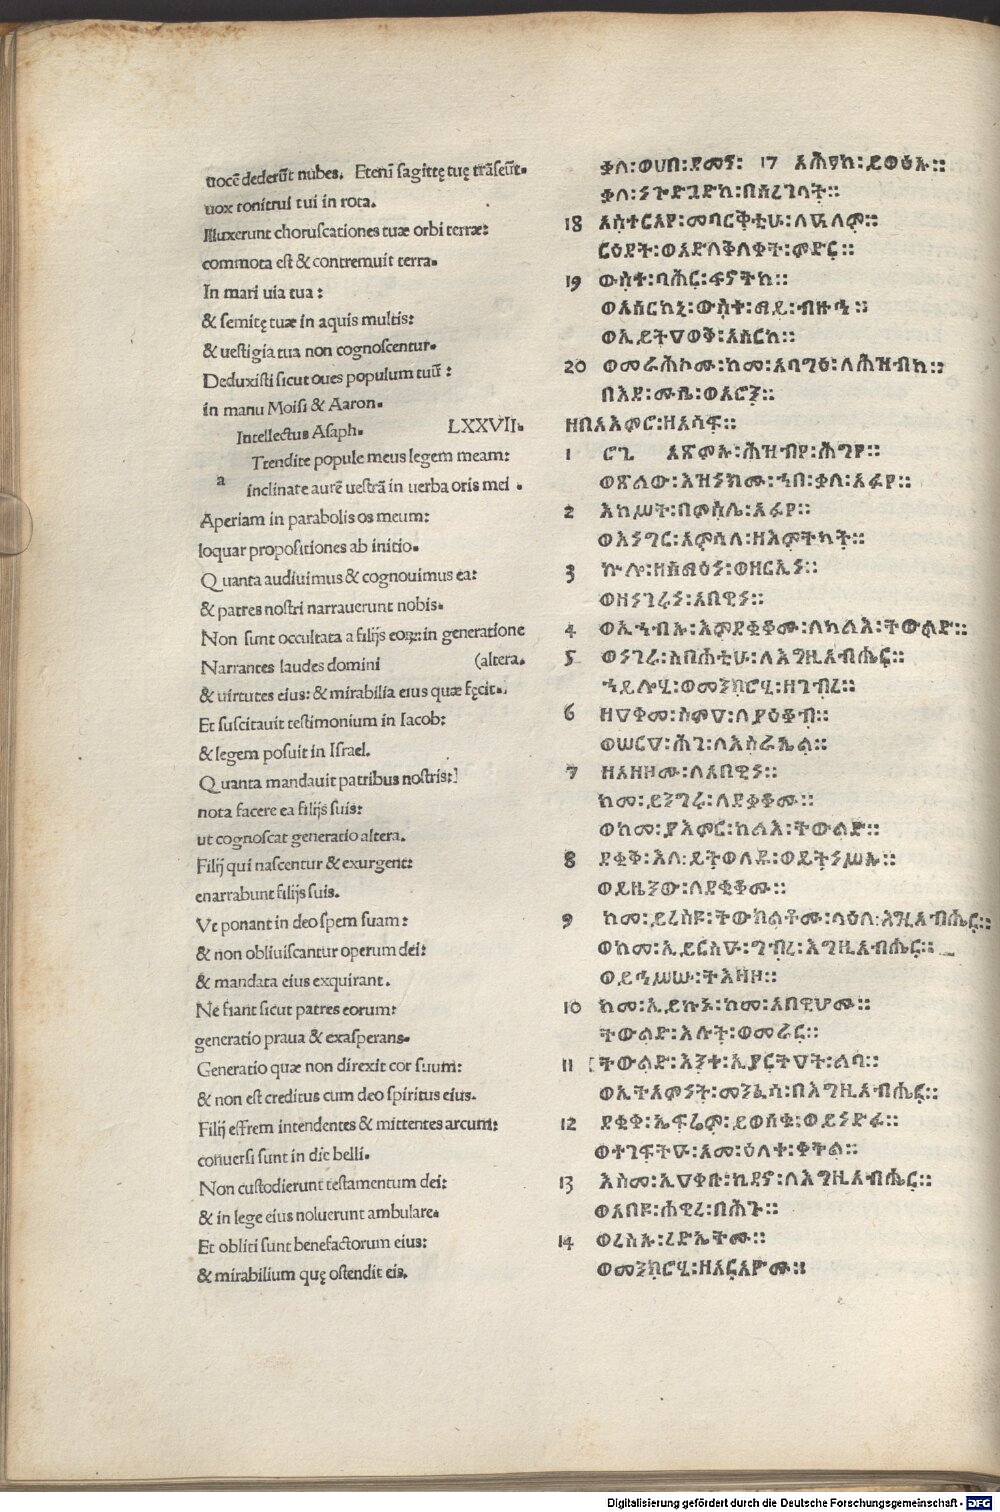 uocē dederūt nubes. Etenī sagittę tuę trāseūt.
uox tonitrui tui in rota.
Illuxerunt choruscationes tuæ orbi terræ:
commota est & contremuit terra.
In mari uia tua :
& semitę tuæ in aquis multis:
& uestigia tua non cognoscentur.
Deduxisti sicut oues populum tuū :
in manu Moisi & Aaron.
Intellectus Asaph. LXXVII.
a Ttendite popule meus legem meam:
inclinate aurē uestrā in uerba oris mei .
Aperiam in parabolis os meum:
loquar propositiones ab initio.
Quanta audiuimus & cognouimus ea:
& patres nostri narrauerunt nobis.
Non sunt occultata a filijs eoꝝ: in generatione
Narrantes laudes domini (altera.
& uirtutes eius: & mirabilia eius quæ fęcit.
Et suscitauit testimonium in Iacob:
& legem posuit in Israel.
Quanta mandauit patribus nostris:
nota facere ea filijs suis:
ut cognoscat generatio altera.
Filij qui nascentur & exurgent:
enarrabunt filijs suis.
Vt ponant in deo spem suam:
& non obliuiscantur operum dei:
& mandata eius exquirant.
Ne fiant sicut patres eorum:
generatio praua & exasperans.
Generatio quæ non direxit cor suum:
& non est creditus cum deo spiritus eius.
Filij effrem intendentes & mittentes arcum:
conuersi sunt in die belli.
Non custodierunt testamentum dei:
& in lege eius noluerunt ambulare.
Et obliti sunt benefactorum eius:
& mirabilium quę ostendit eis.
ቃለ፡ወሀቡ፡ደመና፡ 17 አሕፃከ፡ይወፅኡ።
ቃለ፡ነጐድጓድከ፡በሰረገላት።
18 አስተርአየ፡መባርቅቲሁ፡ለዓለም።
ርዕደት፡ወአድለቅለቀት፡ምድር።
19 ውስተ፡ባሕር፡ፍኖትከ።
ወአሰርከኒ፡ውስተ፡ማይ፡ብዙኅ።
ወኢይትዐወቅ፡አሰርከ።
20 ወመራሕኮሙ፡ከመ፡አባግዕ፡ለሕዝብከ።
በእደ፡ሙሴ፡ወአሮን።
ዘበአእምሮ፡ዘአሳፍ።
1 ርጊ አጽምኡ፡ሕዝብየ፡ሕግየ።
ወጽልው፡እዝነክሙ፡ኀበ፡ቃለ፡አፉየ።
2 እከሥት፡በምሳሌ፡አፉየ።
ወእነግር፡አምሳለ፡ዘእምትካት።
3 ኵሎ፡ዘሰማዕነ፡ወዘርኢነ።
ወዘነገሩነ፡አበዊነ።
4 ወኢኀብኡ፡እምደቂቆሙ፡ለካልእ፡ትውልድ።
5 ወነገሩ፡ስብሐቲሁ፡ለእግዚአብሔር።
ኀይሎሂ፡ወመንክሮሂ፡ዘገብረ።
6 ዘዐቀመ፡ስምዐ፡ለያዕቆብ።
ወሠርዐ፡ሕገ፡ለእስራኤል።
7 ዘአዘዞሙ፡ለአበዊነ።
ከመ፡ይንግሩ፡ለደቂቆሙ።
ወከመ፡ያእምር፡ካልእ፡ትውልድ።
8 ደቂቅ፡እለ፡ይትወለዱ፡ወይትነሥኡ።
ወይዜንው፡ለደቂቆሙ።
9 ከመ፡ይረስዩ፡ትውክልቶሙ፡ላዕለ፡እግዚአብሔር።
ወከመ፡ኢይርስዑ፡ግብረ፡እግዚአብሔር።
ወይኅሥሡ፡ትእዛዘ።
10 ከመ፡ኢይኩኑ፡ከመ፡አበዊሆሙ።
ትውልድ፡እሉት፡ወመራር።
11 ትውልድ፡እንተ፡ኢያርትዐት፡ልባ።
ወኢተአምነት፡መንፈሳ፡በእግዚአብሔር።
12 ደቂቀ፡ኤፍሬም፡ይወስቁ፡ወይነድፉ።
ወተገፍትዑ፡አመ፡ዕለተ፡ቀትል።
13 እስመ፡ኢዐቀቡ፡ኪዳኖ፡ለእግዚአብሔር።
ወአበዩ፡ሐዊረ፡በሕጉ።
14 ወረስኡ፡ረድኤቶሙ።
ወመንክሮሂ፡ዘአርአዮሙ።